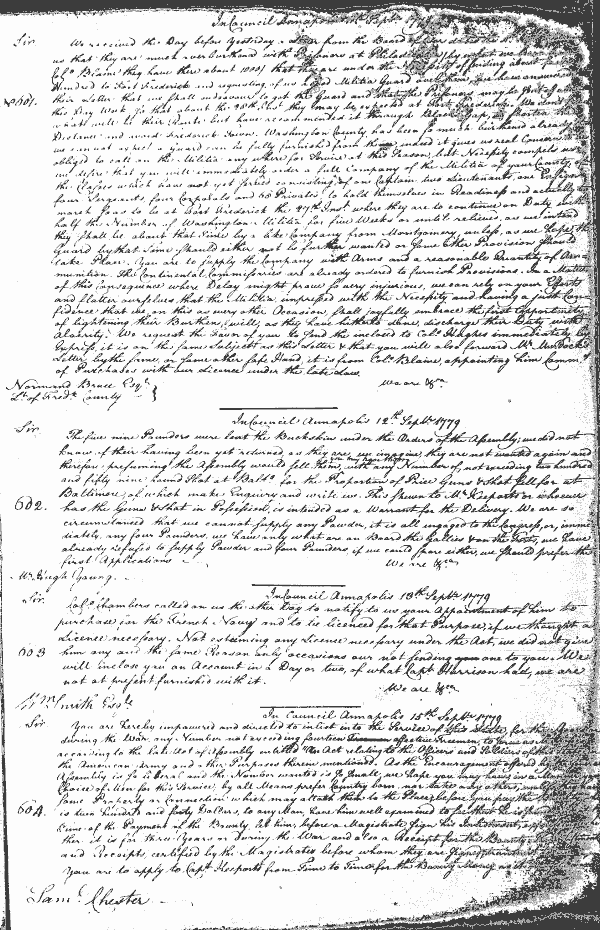 In Council Annapolis Sept. 1779
Sir We received the Day before Yesterday a Letter from the Board of War dated the
us that they are much overburthened with Prisoners at Philadelphia
Colo. Blaine they have there about 1000 that they are under the Necessity of sending about
Hundred to Fort Frederick and requesting of us to find a Militia Guard we have answered
No 601. their Letter that we shall endeavour to get the Guard and that the Prisoners may be sent off
this Day Week so that about the 28th Inst. they may be expected at Fort Frederick. We don't
what will be their Route but have recommended it through Black's Gap, to shorten the
Distance and avoid Frederick Town. Washington County has been so much burthened already
we cannot expect a Guard can be fully furnished from them, indeed it gives us real Concern
obliged to call on the Militia any where for Service at this Season, but Necessity compels us
we desire that you will immediately order a full Company of the Militia of your County, of
the Classes which have not yet served consisting of one Captain two Lieutenants, one Ensign
four Sergeants four Corporals and 48 Privates to hold themselves in Readiness and actually to
march so as to be at Fort Frederick the 27th Inst. where they are to continue on Duty with
half the Number of Washington Militia for five Weeks or until relieved, as we intend
they shall be about that Time by a like Company from Montgomery, unless, as we hope the
Guard by that Time should either not be further wanted or some other Provision should
take Place. You are to supply the Company with Arms and a reasonable Quantity of Am-
munition. The Continental Commissaries are already ordered to furnish Provisions. In a Matter
of this Consequence where Delay might prove so very injurious, we can rely on your Efforts
and flatter ourselves that the Militia impressed with the Necessity and having a just Con-
fidence that we on this as every other Occasion shall joyfully embrace the first Opportunity
of lightening their Burthen, will, as they have hitherto done, discharge their Duty with
Alacrity. We request the Favor of you to send the inclosed to Colo. Hughes immediately by
Express, it is on the same Subject as this Letter & that you will also forward Mr.
Letter, by the same, or some other safe Hand, it is from Colo. Blaine, appointing him Comm.
of Purchases with our Licence under the late Law.
We are &ca.
Normand Bruce Esqr.
Lt. of Fredk. County
In Council Annapolis 12th Septr. 1779
Sir
The five nine Pounders were lent the Buckskin under the Orders of the Assembly; we did not
know of their having been yet returned, as they are, we imagine they are not wanted again and
therefore presuming the Assembly would sell them, you may have them with any Number of, not exceeding two hundred
and fifty nine Pound Shot at Balto. for the Proportion of Price Guns & Shot sell for at
Baltimore, of which make Enquiry and write us. This shewn to Mr. Keeports or whoever
602. has the Guns & Shot in Possession, is intended as a Warrant for the Delivery. We are so
circumstanced that we cannot supply any Powder, it is all engaged to the Congress, or, imme
diately, any four Pounders, we have only what are on Board the Gallies & on the Forts, we have
already refused to supply Powder and four Pounders, if we could spare either, we should prefer the
first Applications
We are &ca.
Mr. Hugh Young.
In Council Annapolis 13th Septr. 1779
Sir. Colo. Chambers called on us the other Day to notify to us your Appointment of him to
purchase for the French Navy and to be licenced for that Purpose, if we thought a
Licence necessary. Not esteeming any Licence necessary under the Act, we did not give
603 him any and the same Reason only occasions our not sending one to you. We
will inclose you an Account in a Day or two, of what Capt. Harrison had, we are
not at present furnished with it.
We are &ca.
Wm. Smith Esqr.
In Council Annapolis 15th Septr. 1779
Sir You are hereby empowered and directed to inlist in the Service of this State, for
during the War, any Number not exceeding fourteen
according to the late Act of Assembly entitled An Act relating to the Officers and Soldiers of this
the American Army and other Purposes therein mentioned. As the Encouragement offered by the
Assembly is so liberal and the Number wanted is so small, we hope you may have in a Manner
Choice of Men for this Service, by all Means prefer Country born, nor take any others, unless they have
some Property or Connection which may attach them to the Place; before you pay the
604 is two hundred and forty Dollars, to any Man, have him well examined to see if he is sound
Time of the Payment of the Bounty let him, before a Magistrate, sign his Enlistment,
ther it is for three Years or during the War and also a Receipt for the Bounty
and Receipts, certified by the Magistrates before whom they are signed,
You are to apply to Capt. Keeports from Time to Time for the Bounty Money
Saml. Chester